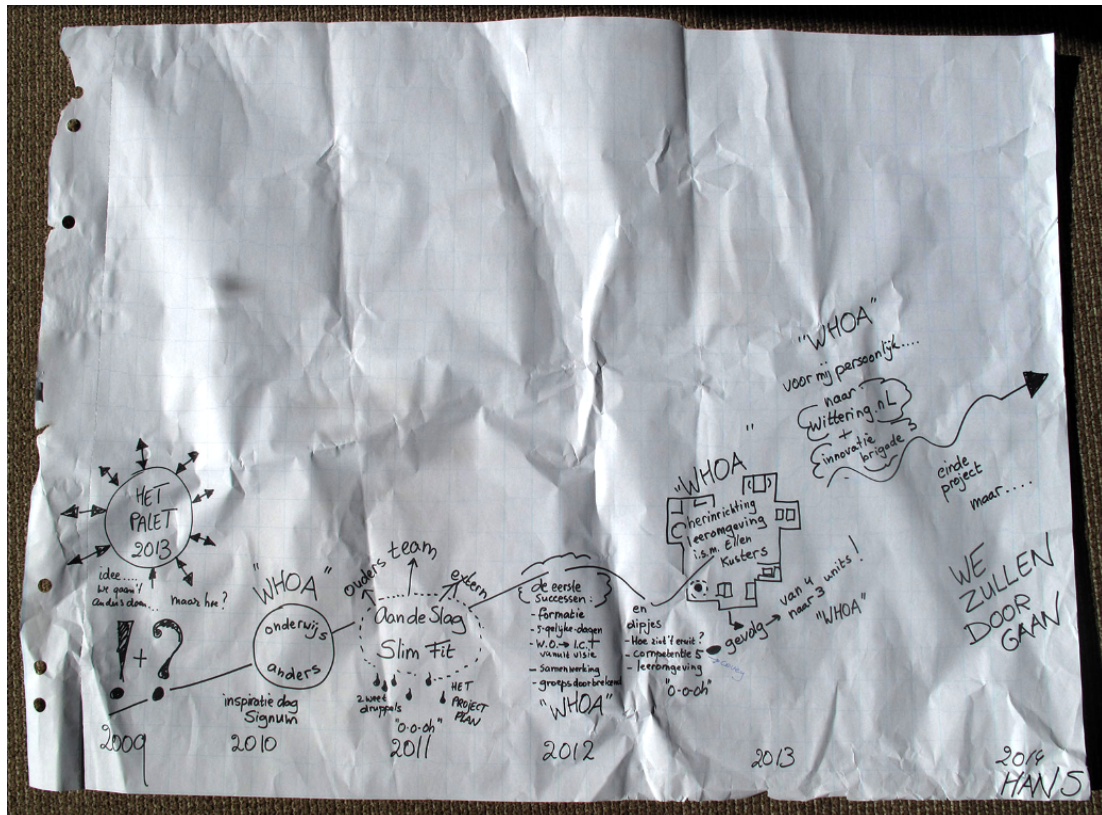 HET
PALET
2013
idee....
we gaan 't
anders doen...
maar hoe?
! + ?
2009
"WHOA"
onderwijs
anders
inspiratie dag
Signum
2010
ouders
team
extern
Aan de Slag
Slim Fit
zweet
druppels
"O-o-oh"
HET
PROJECT
PLAN
2011
de eerste
successen:
- formatie
- 5-gelijke-dagen
- W.O. → I.C.T
vanuit visie
- samenwerking
- groepsdoorbrekend
"WHOA"
2012
en
dipjes
- Hoe ziet 't eruit?
- competentie 5
- leeromgeving
"O-o-oh"
"WHOA"
herinrichting
leeromgeving
i.s.m. Ellen
Kusters
gevolg → van 4
naar 3 units!
"WHOA"
2013
"WHOA"
voor mij persoonlijk....
naar
Wittering.nL
+
innovatie
brigade
einde
project
maar....
WE
ZULLEN
DOOR
GAAN
2014
HANS